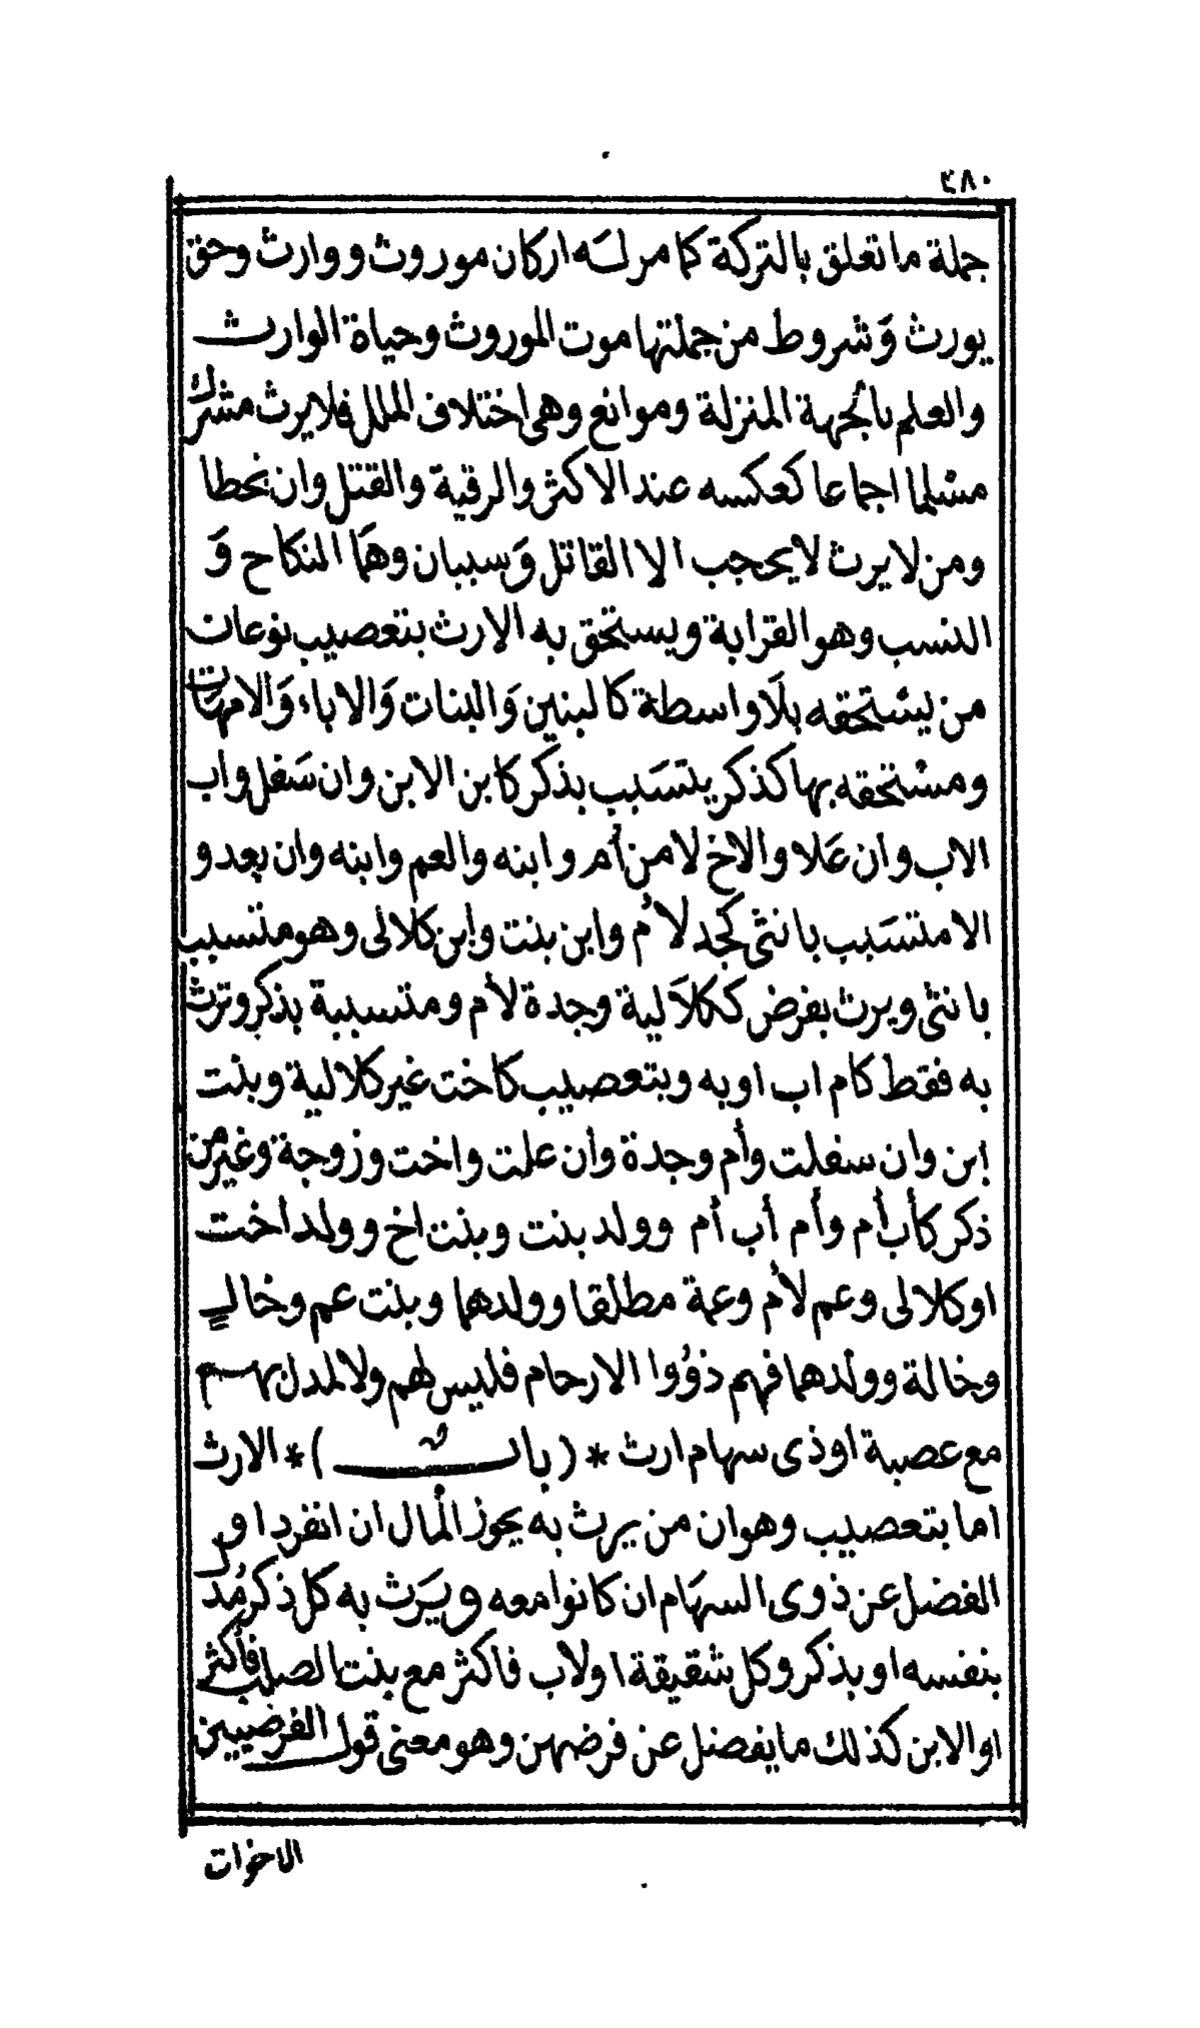 ٢٨٠
جملة ما تعلق بالتركة كما مر لـه اركان موروث ووارث وحق
يورث وَشروط من جملتها موت الموروث وحياة الوارث
والعلم بالجهة المنزلة وموانع وهى اختلاف الملل فلا يرث مشرك
مسلما اجماعا كعكسه عند الاكثر والرقية والقتل وان بخطا
ومن لا يرث لا يحجب الا القاتل وَسببان وهمَا النكاح وَ
النسب وهو القرابة ويستحق به الارث بتعصيب نوعان
من يستحقه بلَا واسطة كالبنين وَالبنات وَالاباء وَالامهات
ومستحقه بها كذكر يتسَبب بذكر كابن الابن وان سَفل واب
الاب وان عَلا والاخ لا من أم وابنه والعم وابنه وان بعد و
الا متسَبب بانثى كجد لأم وابن بنت وإبن كلالى وهو متسبب
بانثى ويرث بفرض ككلَالية وجدة لأم ومتسببة بذكر وترث
به فقط كام اب او به وبتعصيب كاخت غير كلالية وبنت
إبن وان سفلت وأم وجدة وأن علت واخت وزوجة وغير من
ذكر كأب أم وأم أب أم وولد بنت وبنت اخ وولد أخت
او كلالى وعم لأم وعمة مطلقا وولدهما وبنت عم وخال
وخالة وولدهما فهم ذوُوا الارحام فليس لهم ولا لمدل بهم
مع عصبة او ذى سهام ارث * ( باب ) * الارث
اما بتعصيب وهو ان من يرث به يحوز المال ان انفرد او
الفضل عن ذوى السهَام ان كانوا معه ويَرث به كل ذكر مُدل
بنفسه او بذكر وكل شقيقة او لاب فاكثر مع بنت الصلب فأكثر
او الابن كذلك ما يفضل عن فرضهن وهو معنى قول الفرضيين
الاخوات